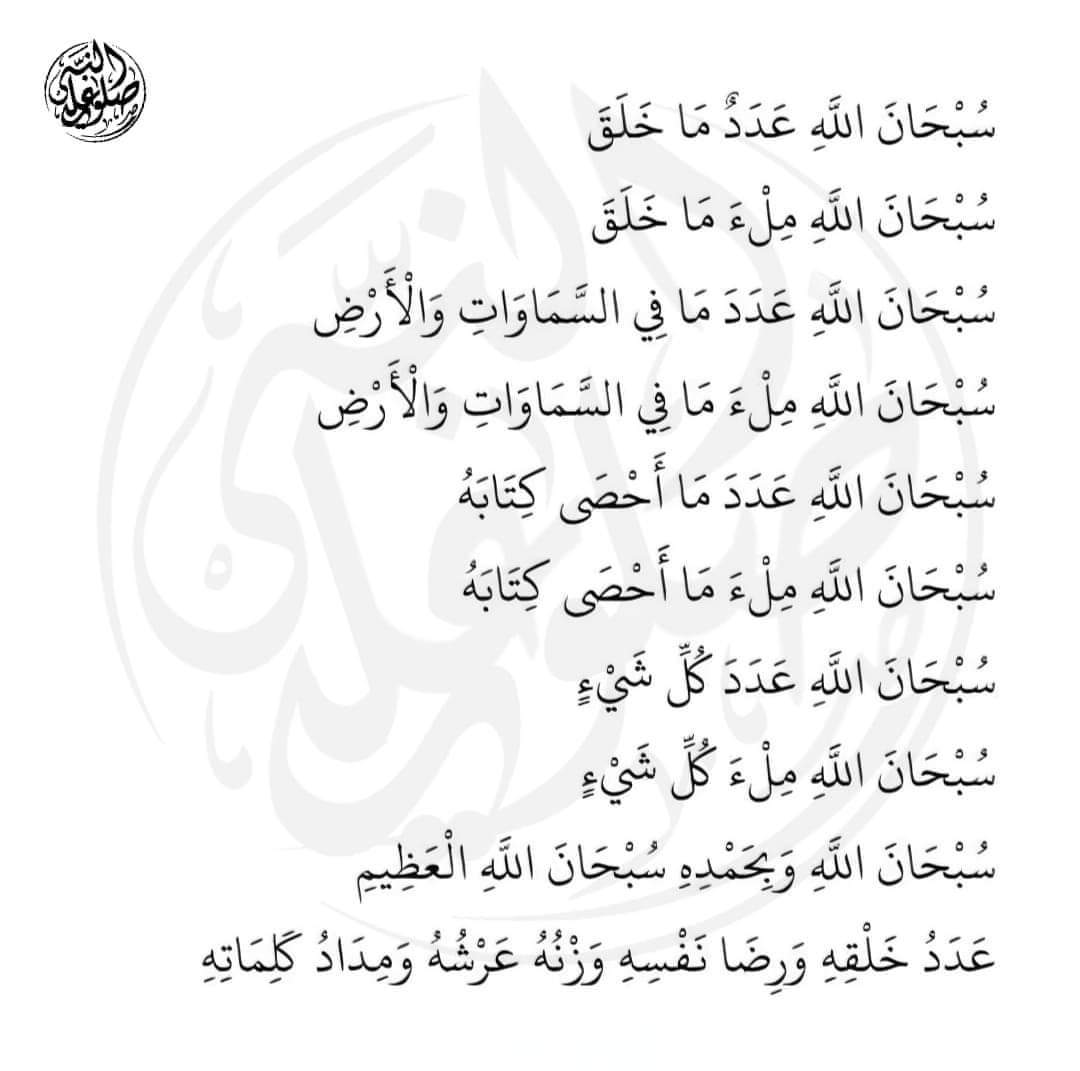 صلوا عليه النبي
سُبْحَانَ اللَّهِ عَدَدٌ مَا خَلَقَ
سُبْحَانَ اللَّهِ مِلْءَ مَا خَلَقَ
سُبْحَانَ اللَّهِ عَدَدَ مَا فِي السَّمَاوَاتِ وَالْأَرْضِ
سُبْحَانَ اللَّهِ مِلْءَ مَا فِي السَّمَاوَاتِ وَالْأَرْضِ
سُبْحَانَ اللَّهِ عَدَدَ مَا أَحْصَى كِتَابَهُ
سُبْحَانَ اللَّهِ مِلْءَ مَا أَحْصَى كِتَابَهُ
سُبْحَانَ اللَّهِ عَدَدَ كُلِّ شَيْءٍ
سُبْحَانَ اللَّهِ مِلْءَ كُلِّ شَيْءٍ
سُبْحَانَ اللَّهِ وَبِحَمْدِهِ سُبْحَانَ اللَّهِ الْعَظِيمِ
عَدَدُ خَلْقِهِ وَرِضَا نَفْسِهِ وَزْنُهُ عَرْشُهُ وَمِدَادُ كَلِمَاتِهِ